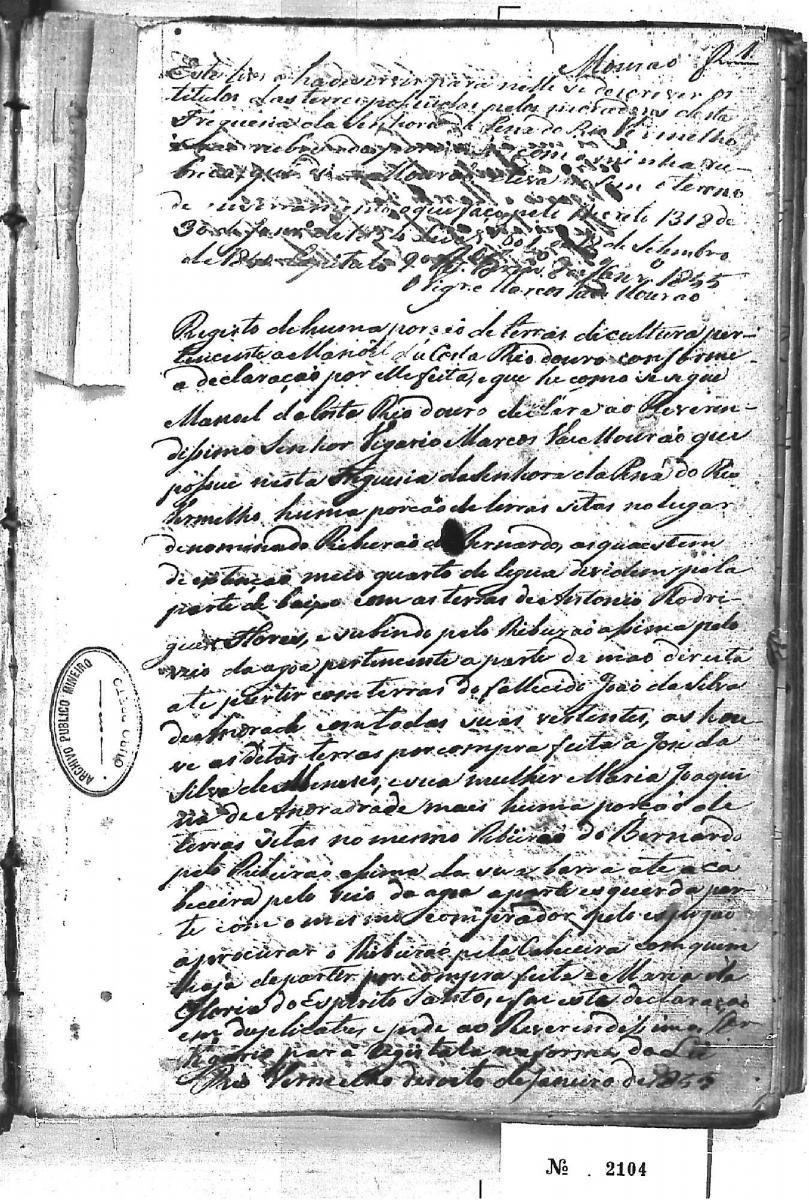 Mourão fl 1
Este livro hade servir para nelle se descrever os
titulos das terras possuidas pelos moradores desta
Freguesia da Senhora da Pena do Rio Vermelho
com a minha ru-
brica que diz Mourão e leva no fim o termo
de encerramento que faço pelo Decreto 1318 de
30 de Janrº de 1854 e Lei 601 de 18 de Setembro
de 1850 Capitulo 9 8 de Janrº 1855
O Vigrº Marcos Vaz Mourão
Registo de huma porção de terras de cultura per-
tencente a Manoel da Costa Rio douro conforme
a declaração por elle feita, e que he como se segue
Manoel da Costa Rio douro declara ao Reveren-
dissimo Senhor Vigario Marcos Vaz Mourão que
possue nesta Freguesia da Senhora da Pena do Rio
Vermelho huma porção de terras sitas no lugar
denominado Ribeirão do Bernardo, as quaes tem
de extenção meio quarto de legua devidem pela
parte de baixo com as terras de Antonio Rodri-
gues Flores, e subindo pelo Ribeirão assima pelo
veio da agoa pertencente a parte de mão direita
ate partir com terras do fallecido João da Silva
de Andrade com todas suas vertentes, as hou-
ve as ditas terras por compra feita a José da
Silva de Meneses, e sua mulher Maria Joaqui
na de Andradrade mais huma porção de
terras sitas no mesmo Ribeirão do Bernardo
pelo Ribeirão assima da sua barra ate a ca
beceira pelo veio da agua a parte esquerda par-
te com o mesmo comprador pelo espigão
a procurar o Ribeirão pela Cabeceira com quem
haja de partir por compra feita a Maria da
Gloria do Espirito Santo, e faz esta declaração
em duplicata, e pede ao Reverendissimo Senr
Vigario para a registala na forma da Lei
Rio Vermelho desoito de Janeiro de 1855
ARCHIVO PUBLICO MINEIRO
OURO PRETO
Nº 2104